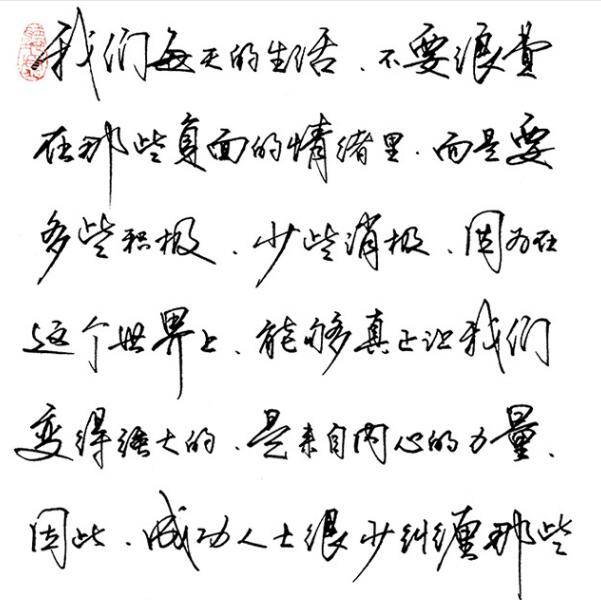 我们每天的生活、不要浪费
在那些负面的情绪里、而是要
多些积极、少些消极、因为在
这个世界上、能够真正让我们
变得强大的、是来自内心的力量、
因此、成功人士很少纠缠那些